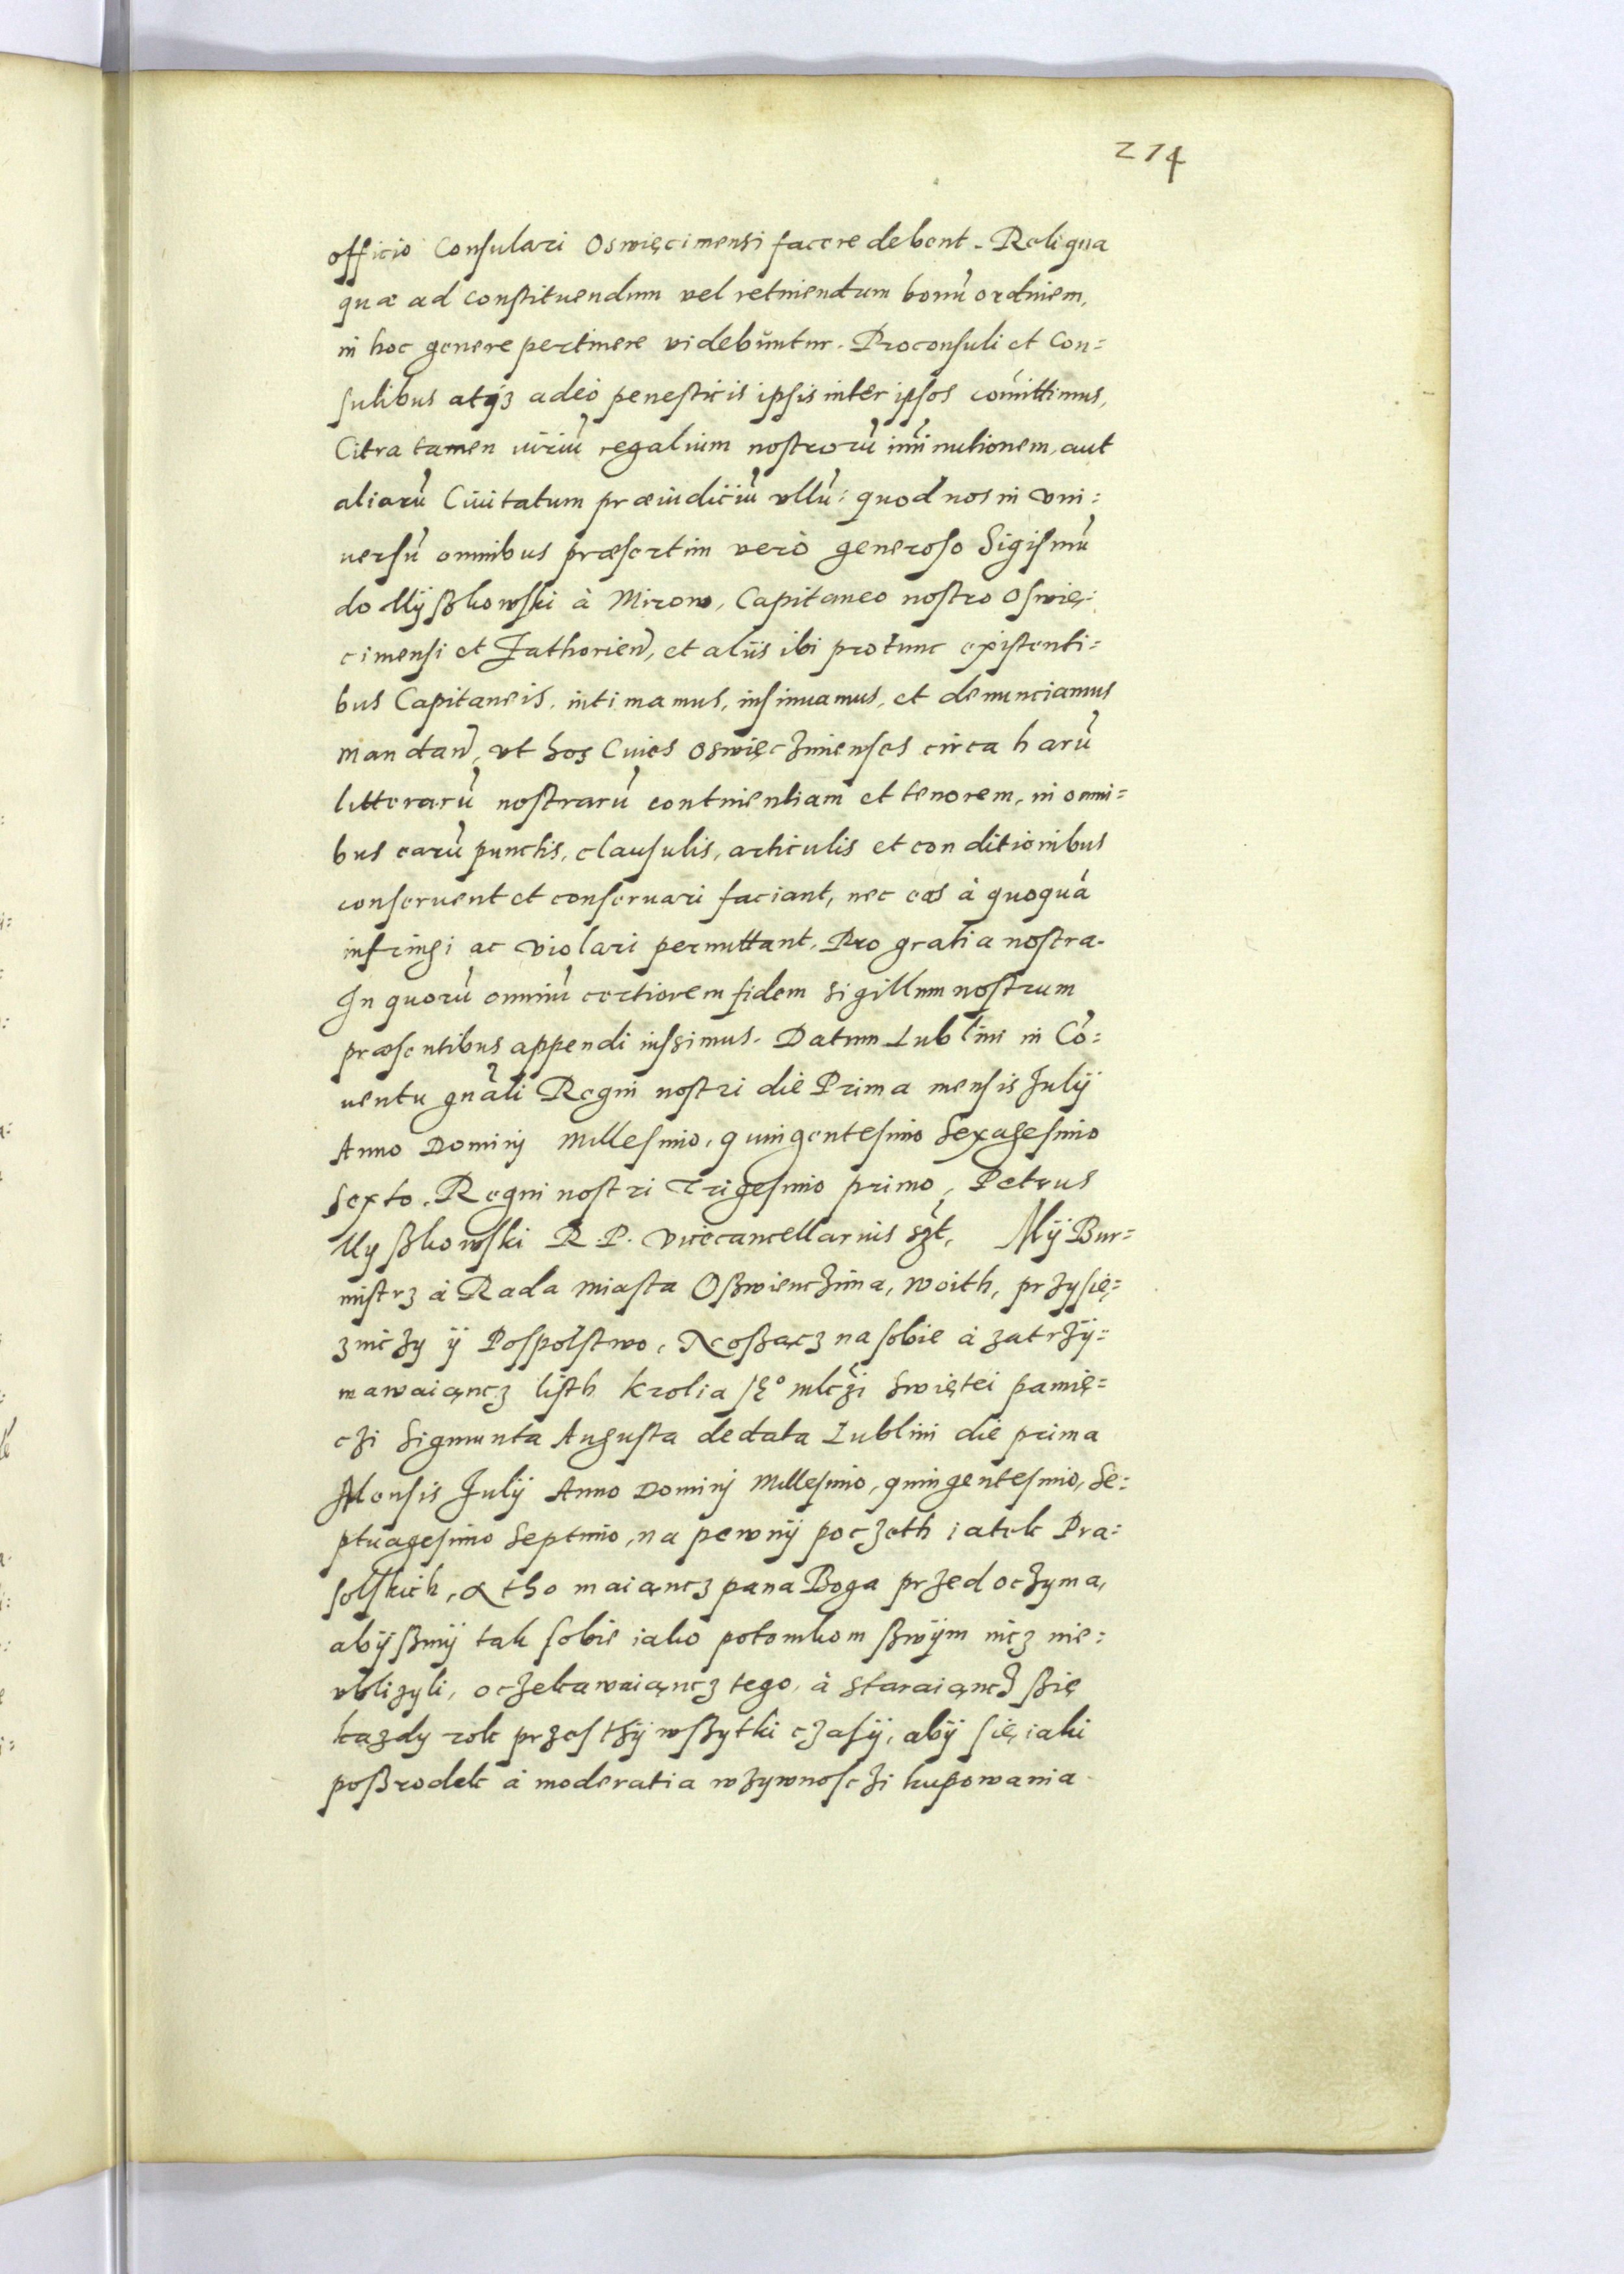 214
officio Consulari Oswięcimensi facere debent. Reliqua
quæ ad constituendum vel retinendum bonū ordinem,
in hoc genere pertinere videbuntur. Proconsuli et Con=
sulibus atq3 adeò penesticis ipsis inter ipsos comittimus,
Citra tamen iuriū regalium nostrorū imminutionem, aut
aliarū Ciuitatum præiudiciū vllū: quod nos in vni:
uersū omnibus præsertim verò generoso Sigismū
do Myßkowski à Mirow, Capitaneo nostro Oswię:
cimensi et Zathorien, et aliis ibi protunc existenti=
bus Capitaneis, intimamus, insinuamus, et denunciamus
mandan, vt hos Ciues Oswięczimenses circa harū
litterarū nostrarū continentiam et tenorem, in omni=
bus earū punctis, clausulis, articulis et conditionibus
conseruent et conseruari faciant, nec eas à quoquā
infringi ac violari permittant, Pro gratia nostra.
In quorū omniū certiorem fidem sigillum nostrum
præsentibus appendi iussimus. Datum Lublini in Cō:
uentu gnāli Regni nostri die Prima mensis Julij
Anno Dominj Millesimo, quingentesimo Sexagesimo
sexto. Regni nostri Trigesimo primo, Petrus
Myßkowski R. P. Vicecancellarius szt, Mÿ Bur=
mistrz à Rada miasta Oßwienczima, Woith, przysię:
zniczy ÿ Pospolstwo, Noßącz na sobie à zatrzÿ:
mawaiąncz listh Krolia Je° mlczi swiętei pamię=
czi Sigmunta Augusta de data Lublini die prima
Mensis Julij Anno Dominj Millesimo, quingentesimo, Se:
ptuagesimo Septimo, na pewnÿ poczeth iatek Pra:
solskich, A tho maiąncz pana Boga przed oczyma,
abÿßmÿ tak sobie iako potomkom ßwÿm nicz nie:
vblizyli, oczekawaiąncz tego, à staraiąncz ßię
kazdy rok przes thÿ wßytki czasÿ, abÿ się iaki
poßrodek à moderatia w zywnosczi kupowania